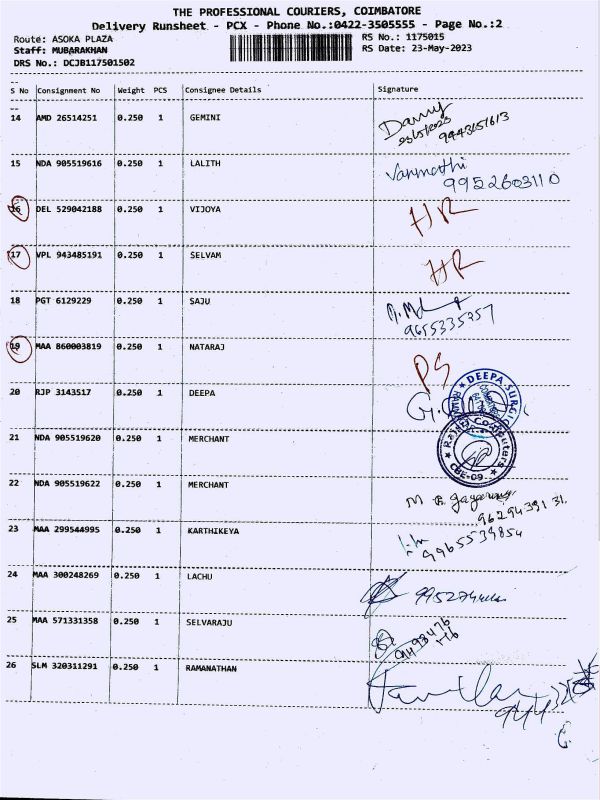 THE PROFESSIONAL COURIERS, COIMBATORE
Delivery Runsheet - PCX - Phone No.:0422-3505555 - Page No.:2
Route: ASOKA PLAZA RS No.: 1175015
Staff: MUBARAKHAN RS Date: 23-May-2023
DRS No.: DCJB117501502
S No Consignment No Weight PCS Consignee Details Signature
14 AMD 26514251 0.250 1 GEMINI
15 NDA 905519616 0.250 1 LALITH Vanmathi
9952603110
16 DEL 529042188 0.250 1 VIJOYA HR
17 VPL 943485191 0.250 1 SELVAM HR
18 PGT 6129229 0.250 1 SAJU
9655335757
19 MAA 860003819 0.250 1 NATARAJ PS
20 RJP 3143517 0.250 1 DEEPA DEEPA SURGI
21 NDA 905519620 0.250 1 MERCHANT Computers
CBE-09
22 NDA 905519622 0.250 1 MERCHANT
9629439131
23 MAA 299544995 0.250 1 KARTHIKEYA
9965539854
24 MAA 300248269 0.250 1 LACHU
25 MAA 571331358 0.250 1 SELVARAJU
26 SLM 320311291 0.250 1 RAMANATHAN